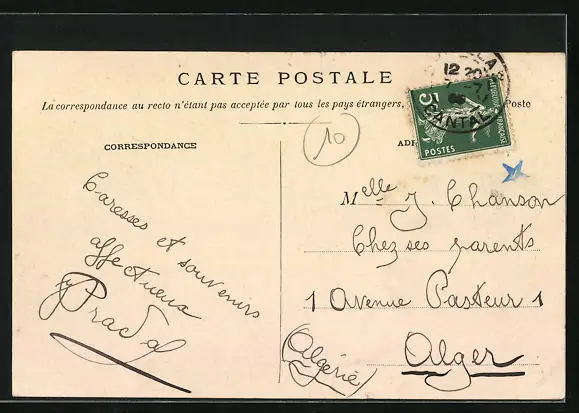 CARTE POSTALE
La correspondance au recto n'étant pas acceptée par tous les pays étrangers, Poste
CORRESPONDANCE
10
Caresses et souvenirs
affectueux
Prada
5
POSTES
FRANÇAISE
12 20
CANTAL
Melle J. Chanson
Chez ses parents
1 Avenue Pasteur 1
Alger
(Algérie)